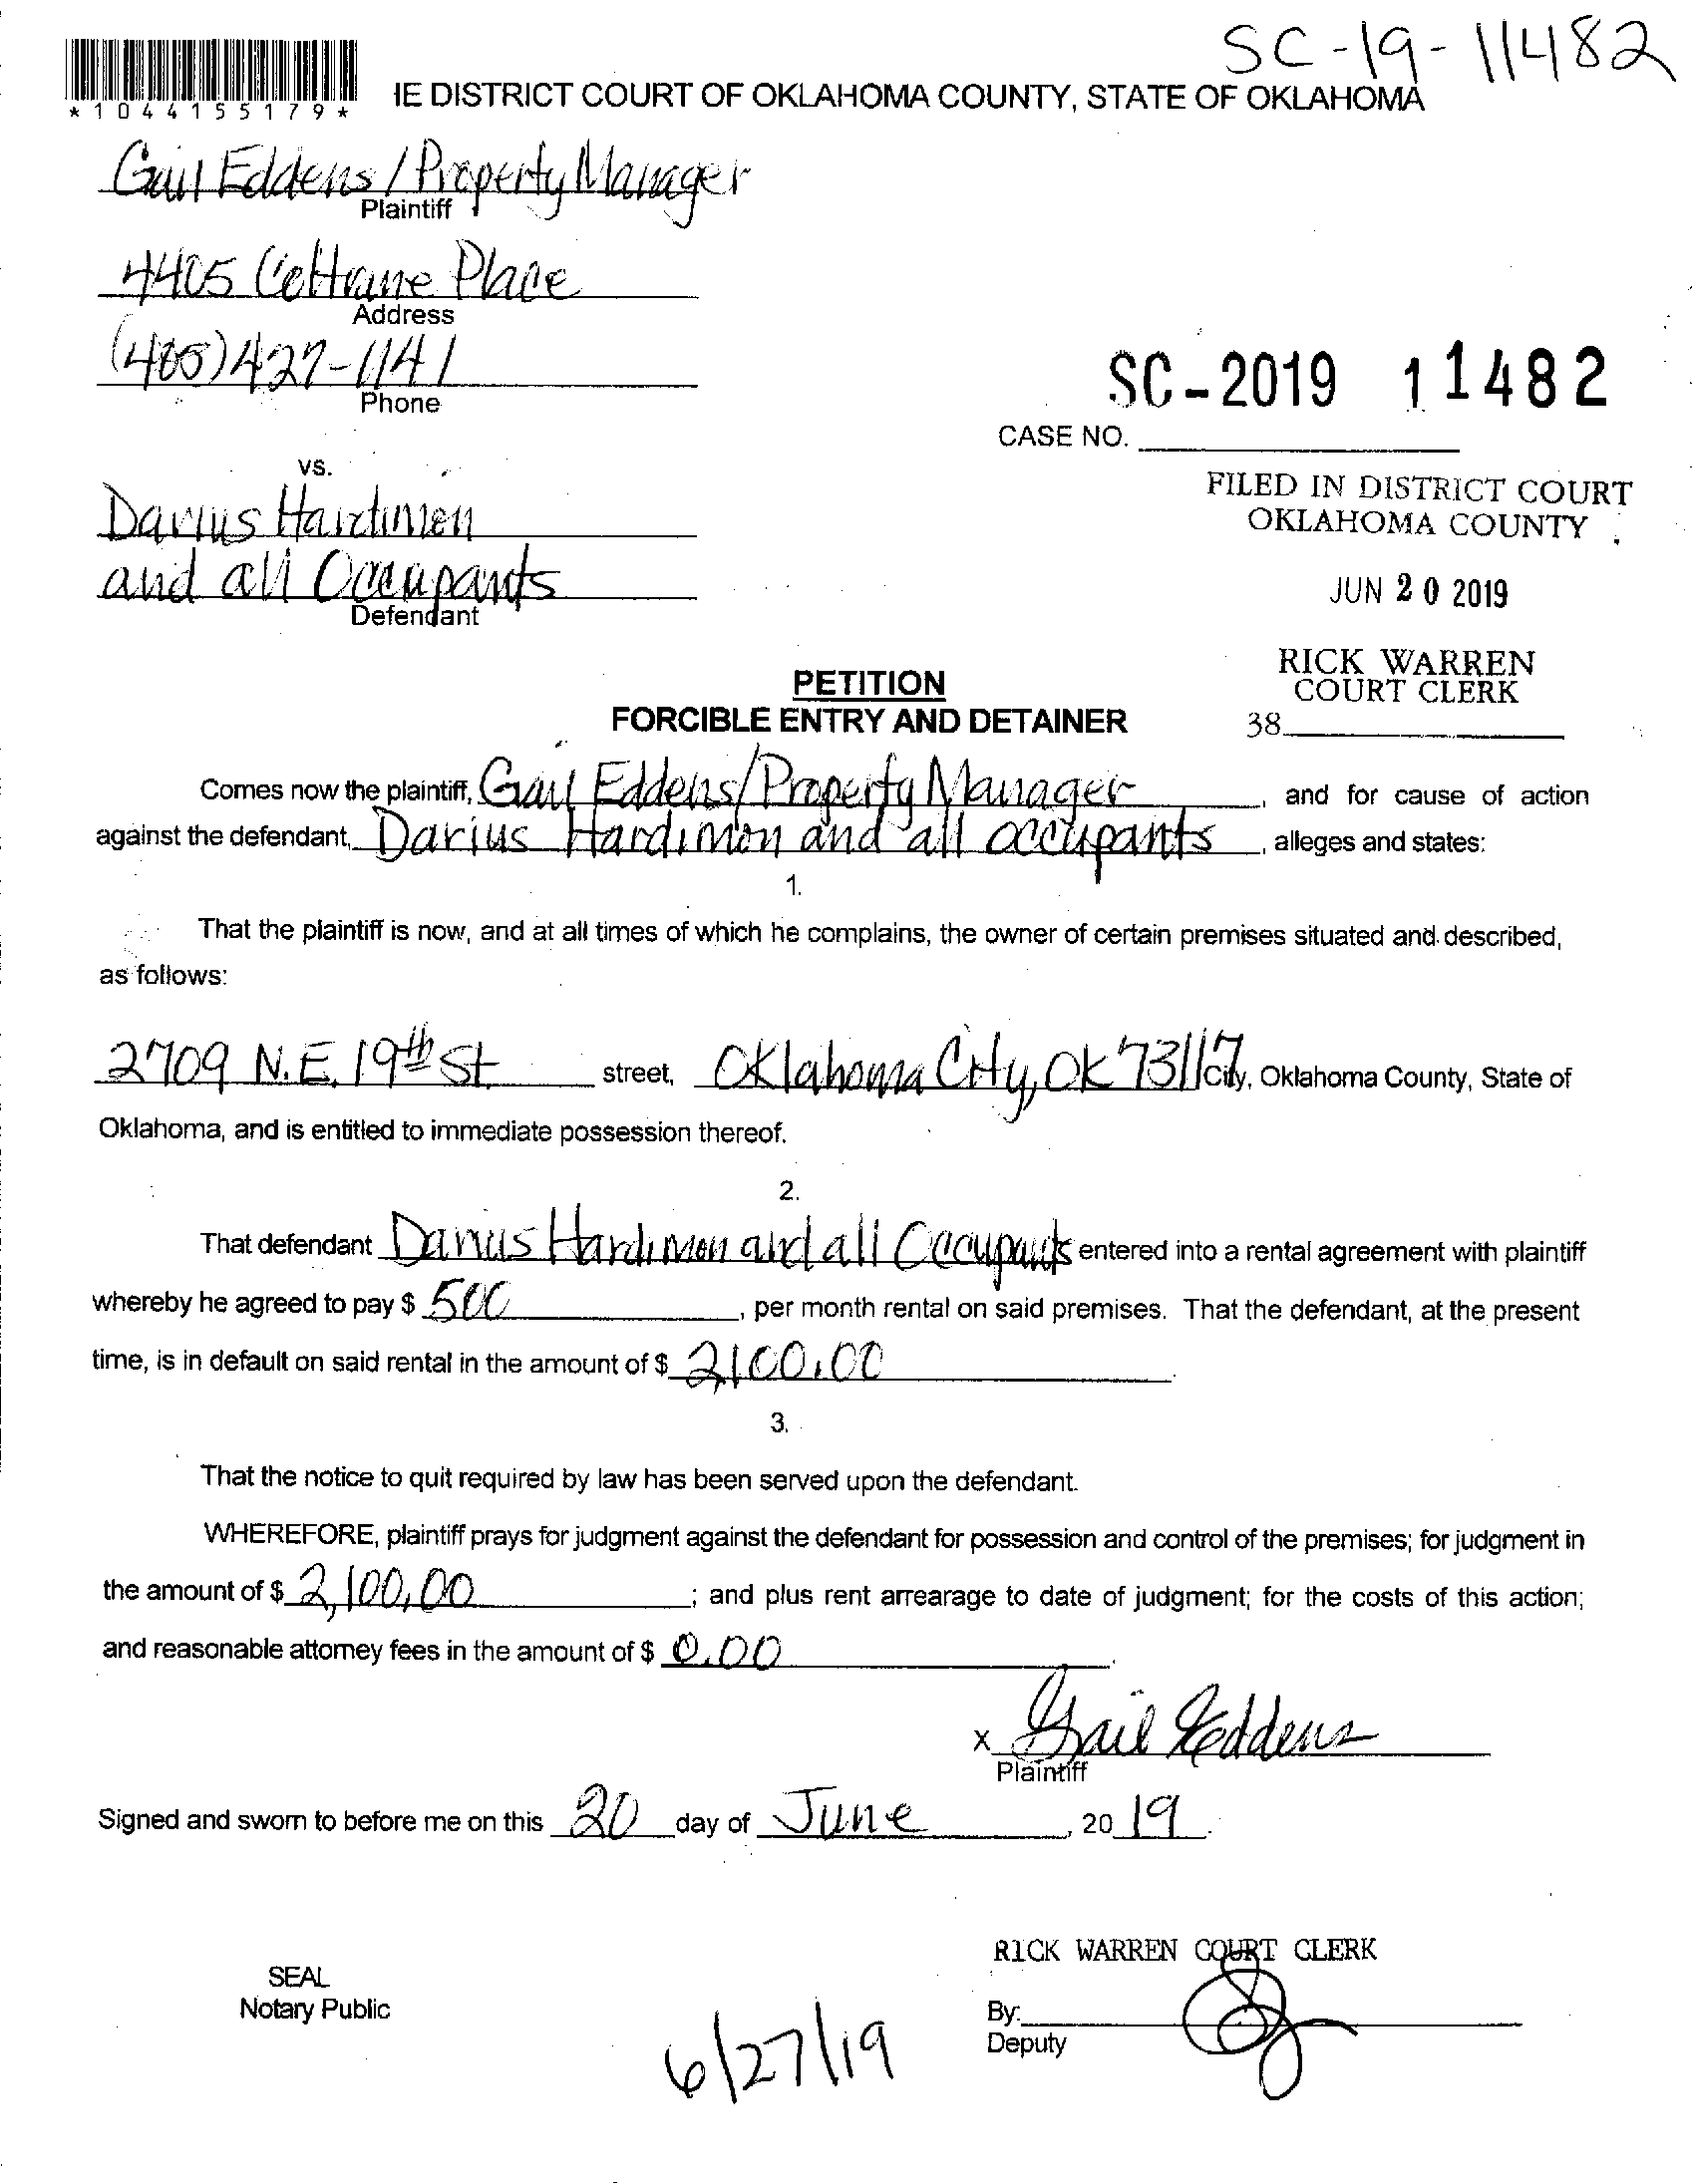 SC-19-11482
*1044155179*
IE DISTRICT COURT OF OKLAHOMA COUNTY, STATE OF OKLAHOMA
Gail Eddens / Property Manager
Plaintiff
4405 Coltrane Place
Address
(405) 427-1141
Phone
SC-2019 11482
CASE NO.
vs.
Darius Hardimon
and all Occupants
Defendant
FILED IN DISTRICT COURT
OKLAHOMA COUNTY
JUN 20 2019
RICK WARREN
COURT CLERK
38
PETITION
FORCIBLE ENTRY AND DETAINER
Comes now the plaintiff, Gail Eddens/Property Manager, and for cause of action
against the defendant, Darius Hardimon and all occupants, alleges and states:
1.
That the plaintiff is now, and at all times of which he complains, the owner of certain premises situated and described,
as follows:
2709 N.E. 19th St. street, Oklahoma City, OK 73117 City, Oklahoma County, State of
Oklahoma, and is entitled to immediate possession thereof.
2.
That defendant Darius Hardimon and all Occupants entered into a rental agreement with plaintiff
whereby he agreed to pay $ 500, per month rental on said premises. That the defendant, at the present
time, is in default on said rental in the amount of $ 2,100.00.
3.
That the notice to quit required by law has been served upon the defendant.
WHEREFORE, plaintiff prays for judgment against the defendant for possession and control of the premises; for judgment in
the amount of $ 2,100.00; and plus rent arrearage to date of judgment; for the costs of this action;
and reasonable attorney fees in the amount of $ 0.00.
x Gail Eddens
Plaintiff
Signed and sworn to before me on this 20 day of June, 2019.
RICK WARREN COURT CLERK
SEAL
Notary Public
By:
Deputy
6/27/19